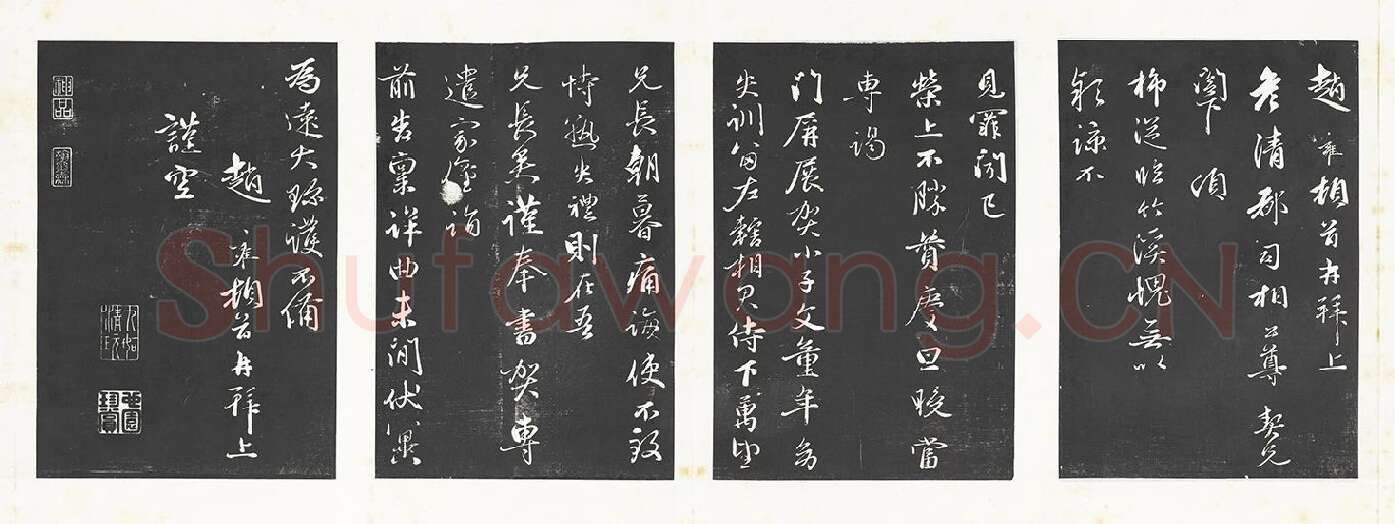 趙雍頓首再拜上
老清郡司相公尊契兄
閣下頃
旆從臨竹溪愧無以
款諒不
見罪閑已
榮上不勝贊慶旦晚當
専謁
門屏展賀小子文童年幼
失訓留左轄相君侍下萬望
兄長朝暮痛誨使不致
恃熟失禮則在吾
兄長矣謹奉書賀専
遣家僮詣
前告稟詳曲未間伏冀
為遠大珎護不備
趙雍頓首再拜上
謹空
神品
Shufawang.CN